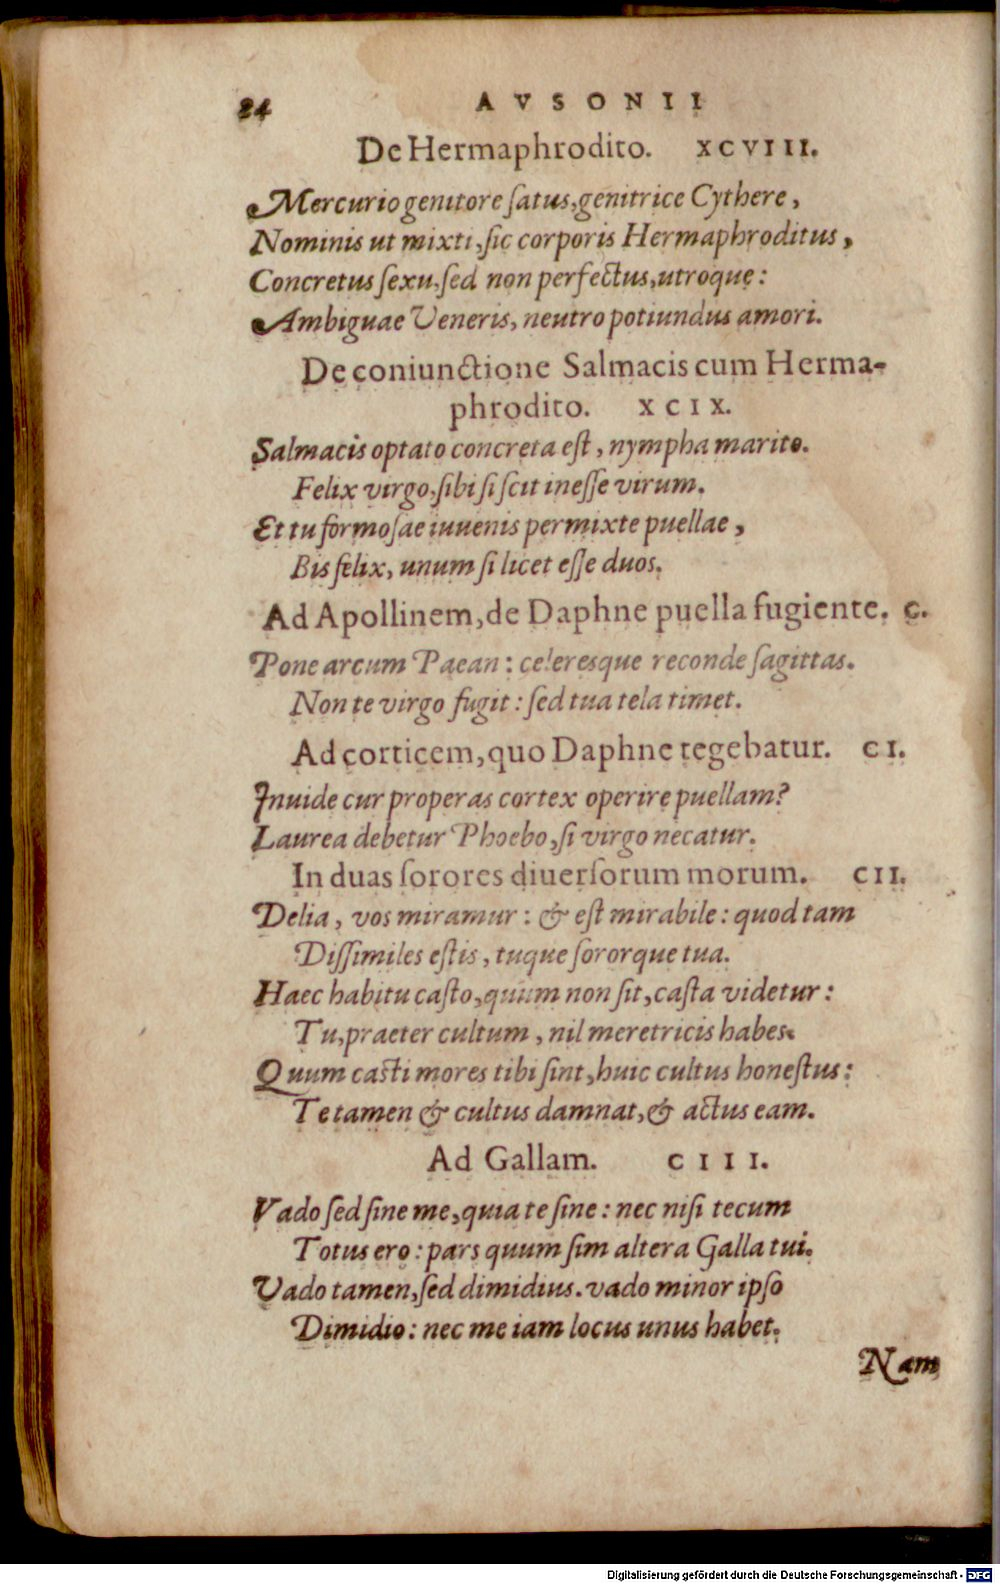 84 AVSONII
De Hermaphrodito. XCVIII.
Mercurio genitore ſatus, genitrice Cythere,
Nominis ut mixti, ſic corporis Hermaphroditus,
Concretus ſexu, ſed non perfectus, utroque:
Ambiguae Veneris, neutro potiundus amori.
De coniunctione Salmacis cum Herma-
phrodito. XCIX.
Salmacis optato concreta eſt, nympha marito.
Felix virgo, ſibi ſi ſcit ineſſe virum.
Et tu formoſae iuuenis permixte puellae,
Bis felix, unum ſi licet eſſe duos.
Ad Apollinem, de Daphne puella fugiente. C.
Pone arcum Paean: celeresque reconde ſagittas.
Non te virgo fugit: ſed tua tela timet.
Ad corticem, quo Daphne tegebatur. CI.
Inuide cur properas cortex operire puellam?
Laurea debetur Phoebo, ſi virgo necatur.
In duas ſorores diuerſorum morum. CII.
Delia, vos miramur: & eſt mirabile: quod tam
Diſſimiles eſtis, tuque ſororque tua.
Haec habitu caſto, quum non ſit, caſta videtur:
Tu, praeter cultum, nil meretricis habes.
Quum caſti mores tibi ſint, huic cultus honeſtus:
Te tamen & cultus damnat, & actus eam.
Ad Gallam. CIII.
Vado ſed ſine me, quia te ſine: nec niſi tecum
Totus ero: pars quum ſim altera Galla tui.
Vado tamen, ſed dimidius. vado minor ipſo
Dimidio: nec me iam locus unus habet.
Nam
Digitalisierung gefördert durch die Deutsche Forschungsgemeinschaft - DFG